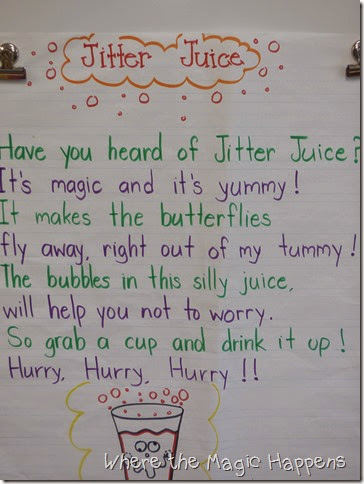 Jitter Juice
Have you heard of Jitter Juice?
It's magic and it's yummy!
It makes the butterflies
fly away, right out of my tummy!
The bubbles in this silly juice,
will help you not to worry.
So grab a cup and drink it up!
Hurry, Hurry, Hurry!!
Where the Magic Happens